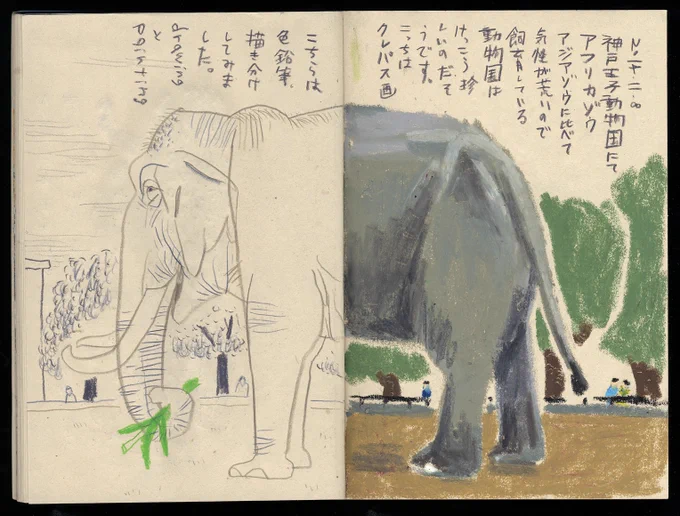 神戸王子動物園にて
アフリカゾウ
アジアゾウに比べて
気性が荒いので
飼育している
動物園は
けっこう珍
しいのだそ
うです。
こっちは
クレパス画
こちらは
色鉛筆。
描き分け
してみま
した。
drawing
と
painting